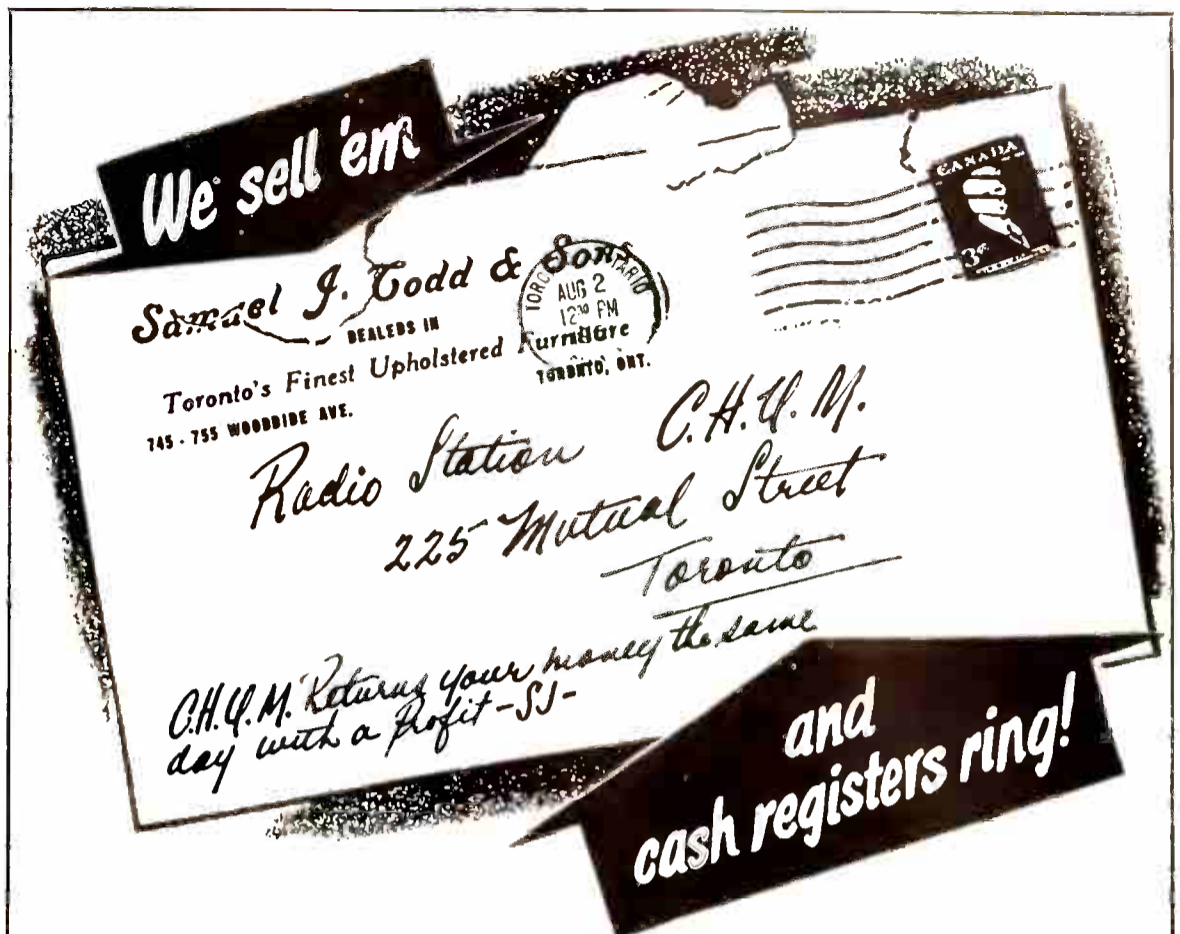 We sell 'em
Samuel J. Todd & Sons
DEALERS IN
Toronto's Finest Upholstered Furniture
745 - 755 WOODBINE AVE.
TORONTO, ONT.
TORONTO ONTARIO
AUG 2
12³⁰ PM
CANADA
3¢
Radio Station C.H.U.M.
225 Mutual Street
Toronto
C.H.U.M. Returns your money the same
day with a Profit -SJ-
and
cash registers ring!